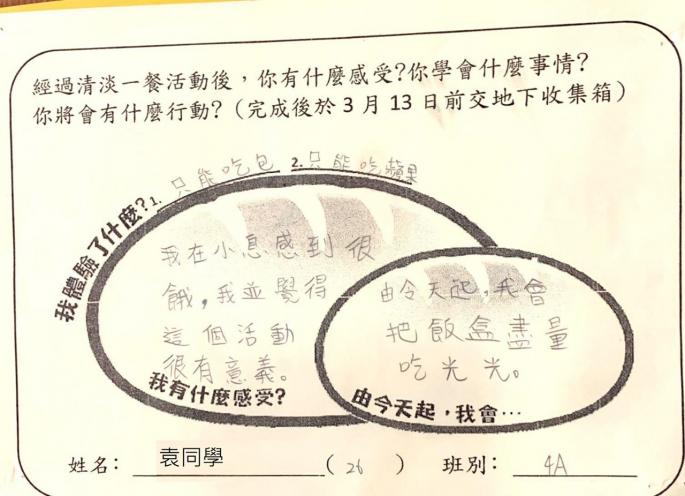 經過清淡一餐活動後，你有什麼感受?你學會什麼事情?
你將會有什麼行動?（完成後於 3 月 13 日前交地下收集箱）
我體驗了什麼?
1. 只能吃包 2. 只能吃蘋果
我在小息感到很
餓，我並覺得
這個活動
很有意義。
我有什麼感受?
由今天起，我會
把飯盒盡量
吃光光。
由今天起，我會…
姓名： 袁同學 （ 26 ） 班別： 4A